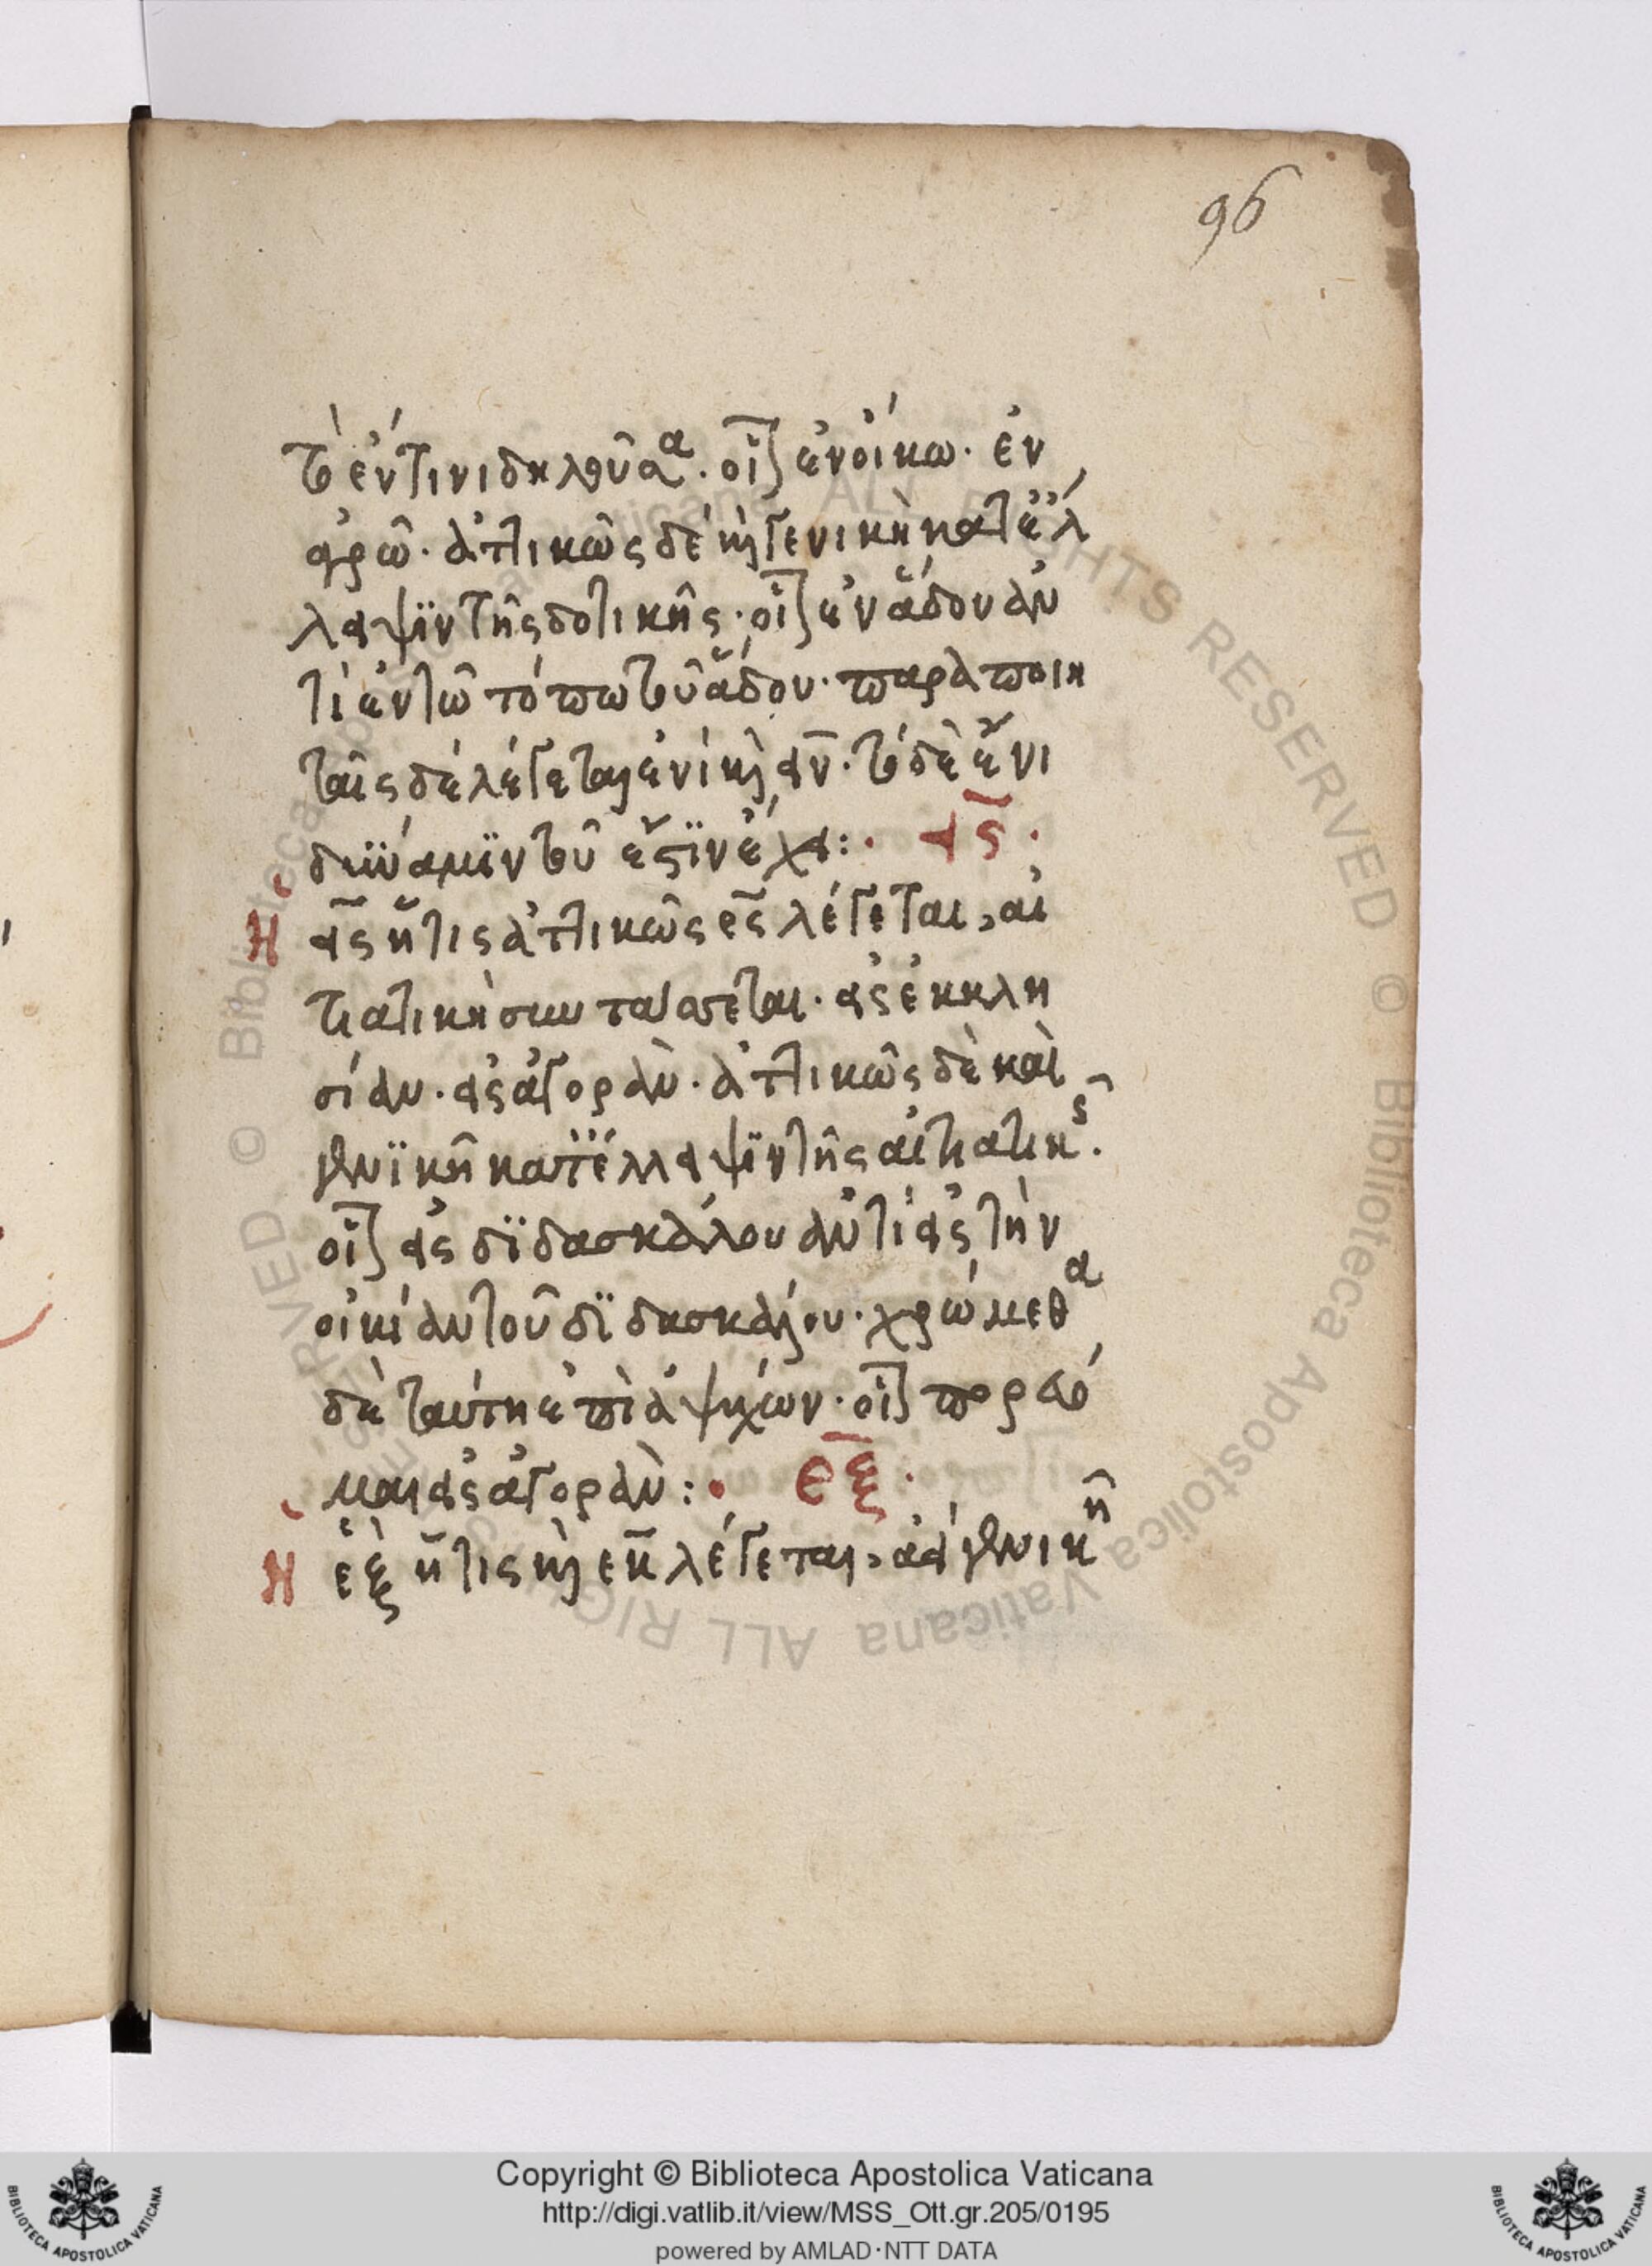 96
τὸ ἔν τινι δηλοῦσα. οἷον ἐν οἴκω. ἐν
ἀγρῶ. ἀττικῶς δὲ καὶ γενικῆ κατ' ἔλ
λειψϊν τῆς δοτικῆς. οἷον ἐν ἅδου ἀν
τὶ ἐν τῶ τόπω τοῦ ἅδου. παρὰ ποιη
ταῖς δὲ λέγεται ἐνὶ καὶ εἰν. τὸ δὲ ἔνι
δύναμϊν τοῦ ἔστϊν ἔχει:· εἰς.
Ἡ εἰς ἥτις ἀττικῶς ἐς λέγεται, αἰ
τιατικῆ συντάσσεται. εἰς ἐκκλη
σίαν. εἰς ἀγοράν. ἀττικῶς δὲ καὶ
γενϊκῆ κατ' ἔλλειψϊν τῆς αἰτιατικῆς.
οἷον εἰς δϊδασκάλου ἀντὶ εἰς τὴν
οἰκίαν τοῦ δϊδασκάλου. χρώμεθα
δὲ ταύτη ἐπὶ ἀψύχων. οἷον πορεύο
μαι εἰς ἀγοράν:· εξ.
Ἡ ἐξ ἥτις καὶ ἐκ λέγεται, ἀεὶ γενικῆ
Copyright © Biblioteca Apostolica Vaticana
http://digi.vatlib.it/view/MSS_Ott.gr.205/0195
powered by AMLAD·NTT DATA
BIBLIOTECA APOSTOLICA VATICANA
BIBLIOTECA APOSTOLICA VATICANA
Biblioteca Apostolica Vaticana ALL RIGHTS RESERVED © Biblioteca Apostolica Vaticana ALL RIGHTS RESERVED ©